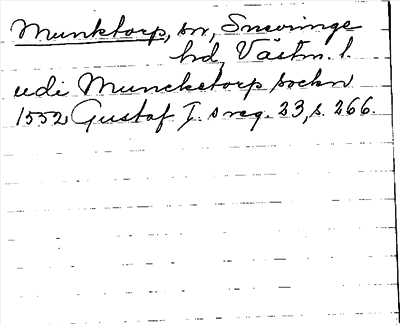 Munktorp, sn, Snevringe
hd, Västm. l.
udi Muncketorp sockn
1552 Gustaf I. s reg. 23, s. 266.